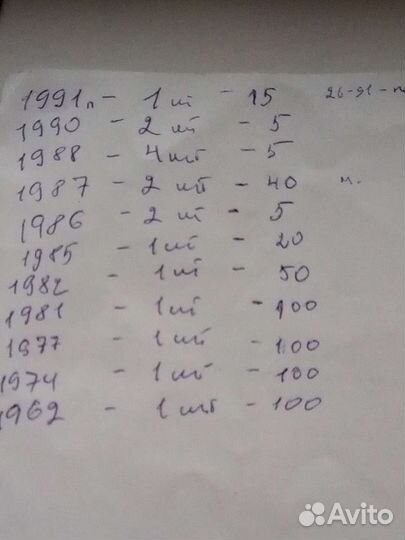 1991л - 1 шт - 15 26-91-
1990 - 2 шт - 5
1988 - 4 шт - 5
1987 - 2 шт - 40 м.
1986 - 2 шт - 5
1985 - 1 шт - 20
1982 - 1 шт - 50
1981 - 1 шт - 100
1977 - 1 шт - 100
1974 - 1 шт - 100
1962 - 1 шт - 100
Avito